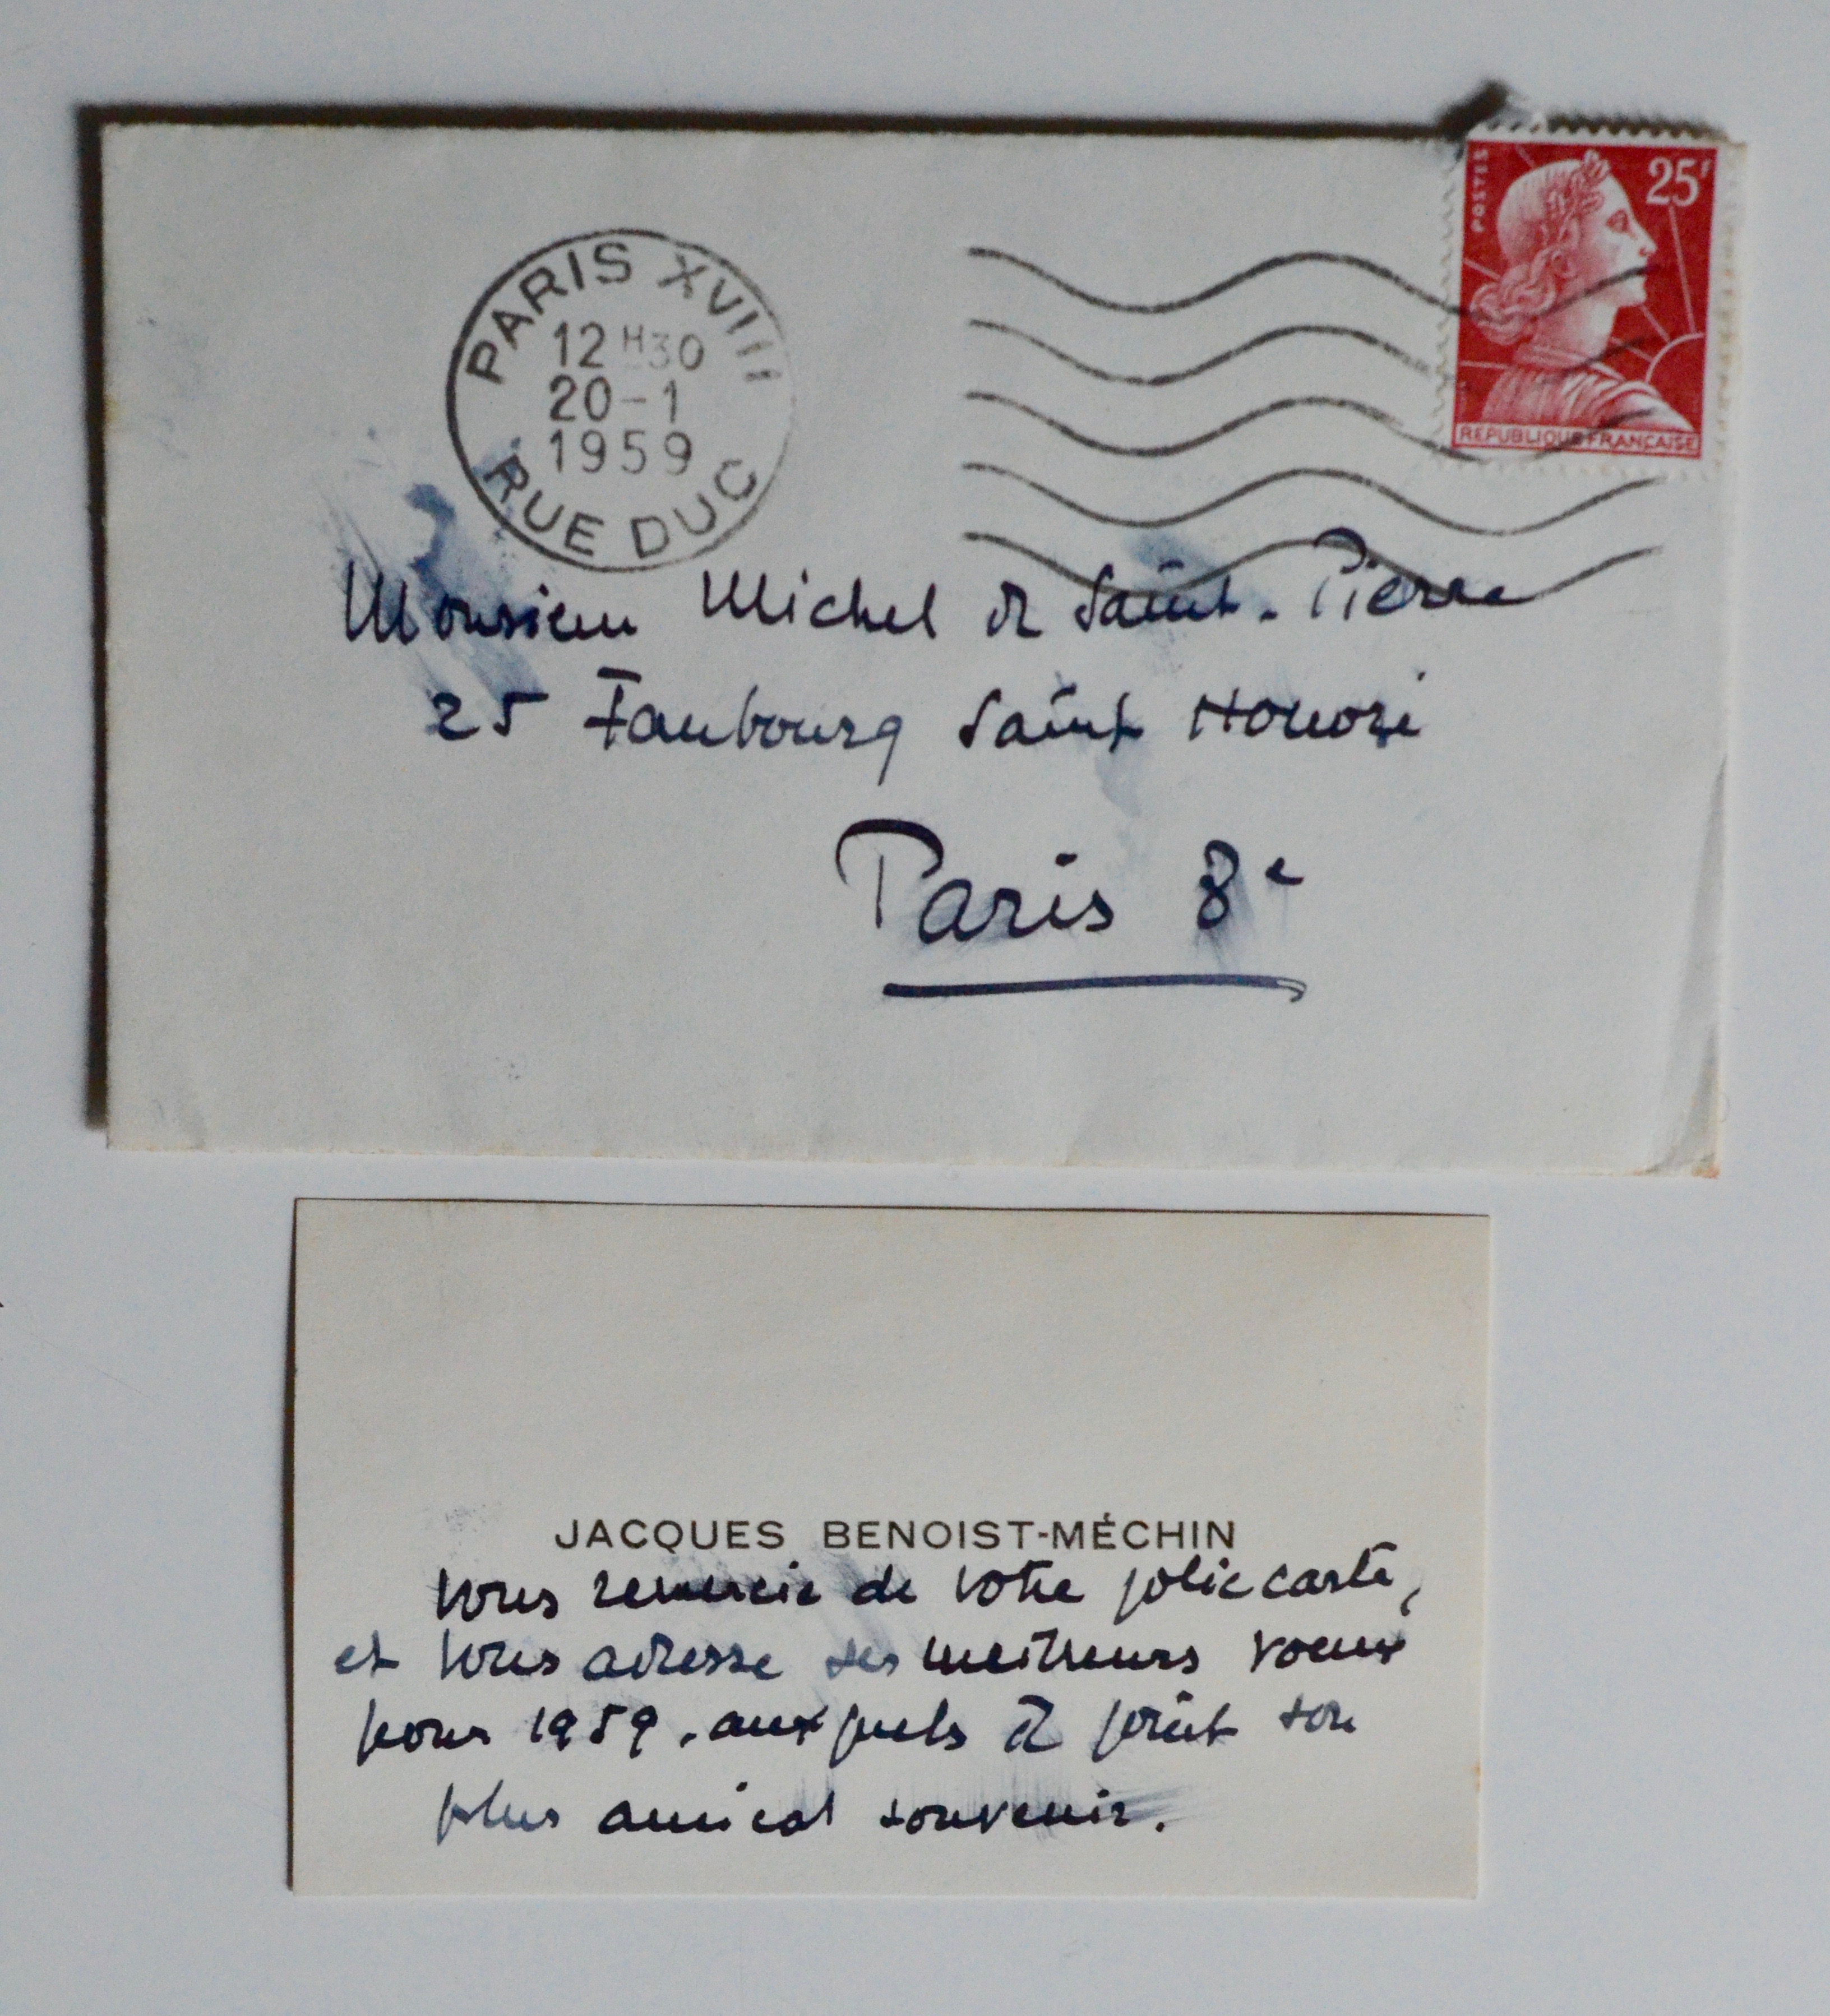 PARIS XVIII
12H30
20-1
1959
RUE DUC
POSTES
25F
REPUBLIQUE FRANÇAISE
Monsieur Michel de Saint-Pierre
25 Faubourg Saint Honoré
Paris 8e
JACQUES BENOIST-MÉCHIN
vous remercie de votre jolie carte,
et vous adresse ses meilleurs voeux
pour 1959, auxquels il joint son
plus amical souvenir.